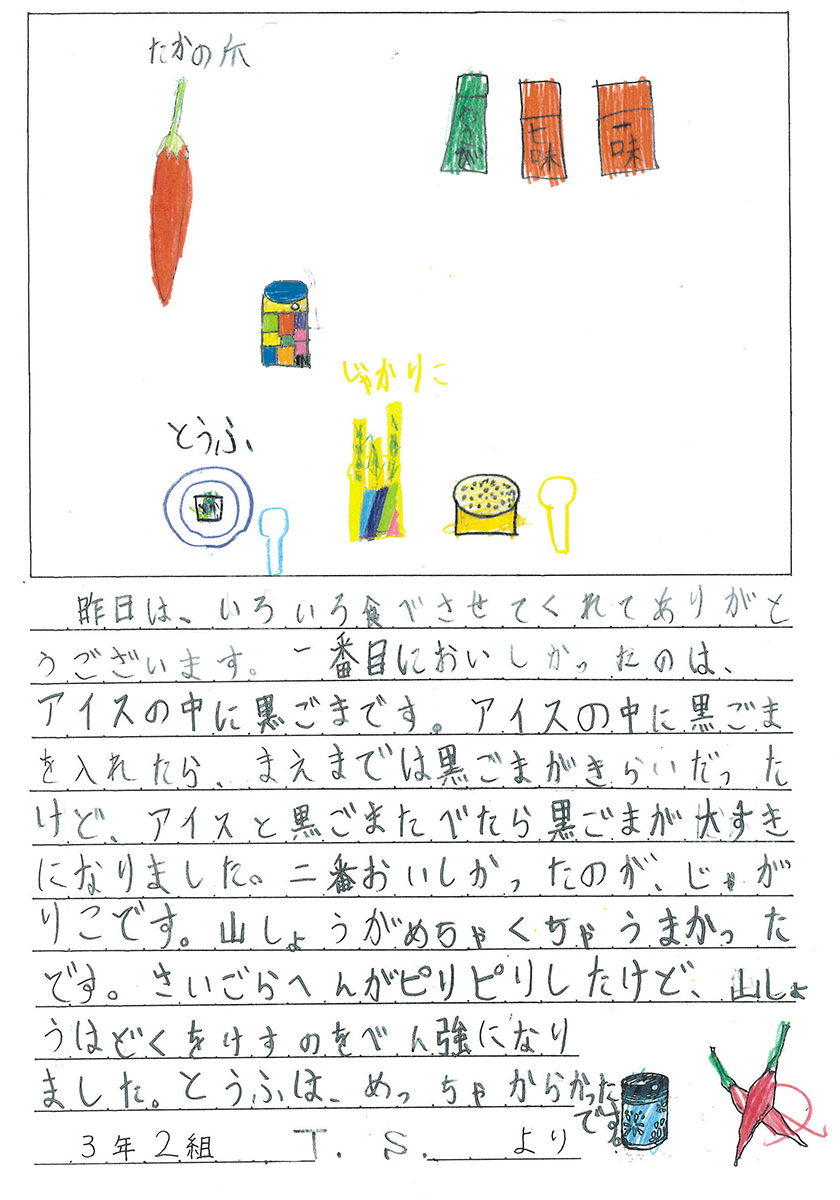 たかの爪
七味
一味
じゃかりこ
とうふ
昨日は、いろいろ食べさせてくれてありがと
うございます。一番目においしかったのは、
アイスの中に黒ごまです。アイスの中に黒ごま
を入れたら、まえまでは黒ごまがきらいだった
けど、アイスと黒ごまたべたら黒ごまが大すき
になりました。二番おいしかったのが、じゃが
りこです。山しょうがめちゃくちゃうまかった
です。さいごらへんがピリピリしたけど、山しょ
うはどくをけすのをべん強になり
ました。とうふは、めっちゃからかった
です。
3年2組 T.S. より